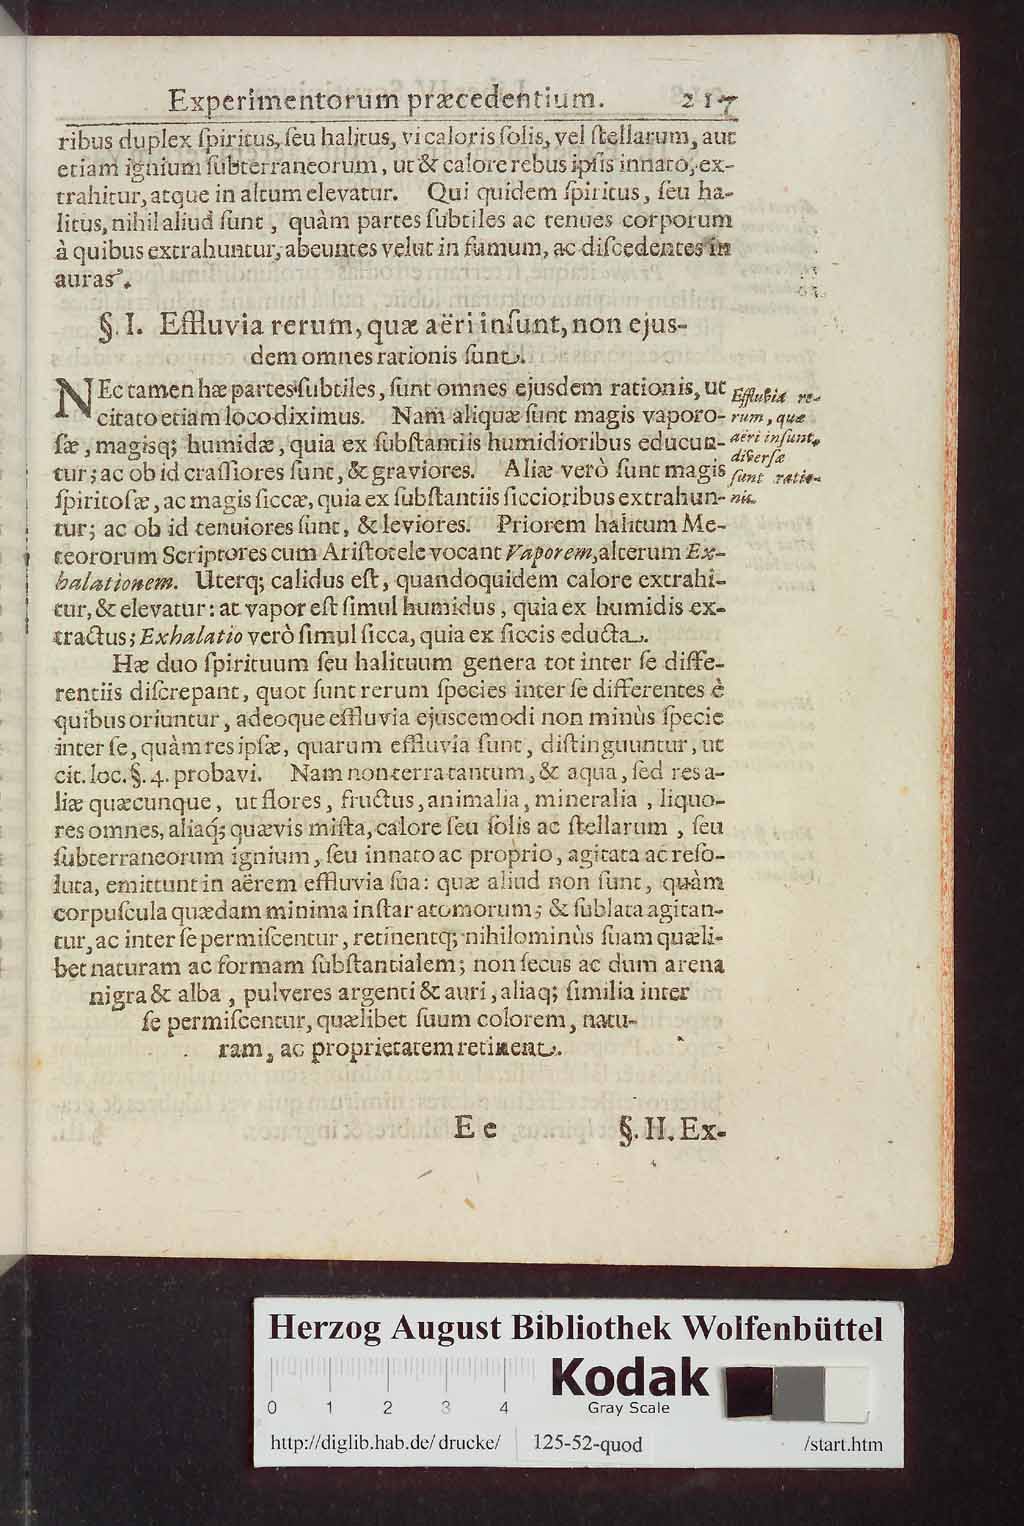 Experimentorum præcedentium. 217
ribus duplex ſpiritus, ſeu halitus, vi caloris ſolis, vel ſtellarum, aut
etiam ignium ſubterraneorum, ut & calore rebus ipſis innato, ex-
trahitur, atque in altum elevatur. Qui quidem ſpiritus, ſeu ha-
litus, nihil aliud ſunt, quàm partes ſubtiles ac tenues corporum
à quibus extrahuntur, abeuntes velut in fumum, ac diſcedentes in
auras.
§. I. Effluvia rerum, quæ aëri inſunt, non ejus-
dem omnes rationis ſunt.
NEc tamen hæ partes ſubtiles, ſunt omnes ejusdem rationis, ut
citato etiam loco diximus. Nam aliquæ ſunt magis vaporo-
ſæ, magisq; humidæ, quia ex ſubſtantiis humidioribus educun-
tur; ac ob id craſſiores ſunt, & graviores. Aliæ verò ſunt magis
ſpiritoſæ, ac magis ſiccæ, quia ex ſubſtantiis ſiccioribus extrahun-
tur; ac ob id tenuiores ſunt, & leviores. Priorem halitum Me-
teororum Scriptores cum Ariſtotele vocant Vaporem, alterum Ex-
halationem. Uterq; calidus eſt, quandoquidem calore extrahi-
tur, & elevatur: at vapor eſt ſimul humidus, quia ex humidis ex-
tractus; Exhalatio verò ſimul ſicca, quia ex ſiccis educta.
Effluvia re-
rum, quæ
aëri inſunt,
diverſæ
ſunt ratio-
nis.
Hæ duo ſpirituum ſeu halituum genera tot inter ſe diffe-
rentiis diſcrepant, quot ſunt rerum ſpecies inter ſe differentes è
quibus oriuntur, adeoque effluvia ejuscemodi non minùs ſpecie
inter ſe, quàm res ipſæ, quarum effluvia ſunt, diſtinguuntur, ut
cit. loc. §. 4. probavi. Nam non terra tantum, & aqua, ſed res a-
liæ quæcunque, ut flores, fructus, animalia, mineralia, liquo-
res omnes, aliaq; quævis miſta, calore ſeu ſolis ac ſtellarum, ſeu
ſubterraneorum ignium, ſeu innato ac proprio, agitata ac reſo-
luta, emittunt in aërem effluvia ſua: quæ aliud non ſunt, quàm
corpuſcula quædam minima inſtar atomorum; & ſublata agitan-
tur, ac inter ſe permiſcentur, retinentq; nihilominùs ſuam quæli-
bet naturam ac formam ſubſtantialem; non ſecus ac dum arena
nigra & alba, pulveres argenti & auri, aliaq; ſimilia inter
ſe permiſcentur, quælibet ſuum colorem, natu-
ram, ac proprietatem retinent.
Ee §. II. Ex-
Herzog August Bibliothek Wolfenbüttel
Kodak
Gray Scale
0 1 2 3 4
http://diglib.hab.de/drucke/ 125-52-quod /start.htm